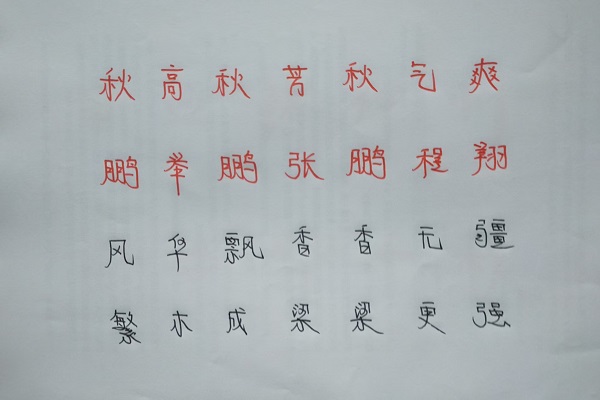 秋高秋芳秋气爽
鹏举鹏张鹏程翔
风华飘香香无疆
繁木成梁梁更强